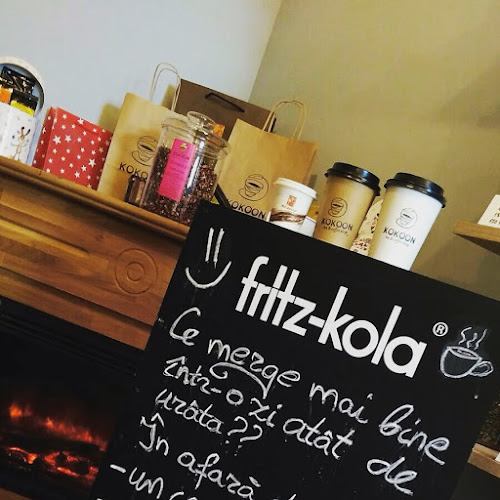 KOKOON
KOKOON
KOKOON
KOKOON
fritz-kola®
Ce merge mai bine
într-o zi atât de
urâta??
În afară
-un